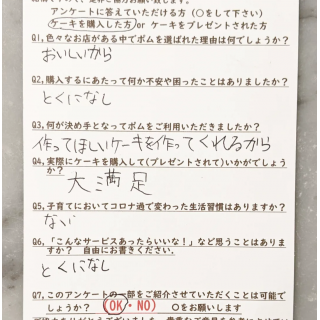 アンケートに答えていただける方（○をして下さい）
ケーキを購入した方 or ケーキをプレゼントされた方
Q1,色々なお店がある中でボムを選ばれた理由は何でしょうか？
おいしいから
Q2,購入するにあたって何か不安や困ったことはありましたか？
とくになし
Q3,何が決め手となってボムをご利用いただきましたか？
作ってほしいケーキを作ってくれるから
Q4,実際にケーキを購入して(プレゼントされて)いかがでしょう
か？
大満足
Q5,子育てにおいてコロナ過で変わった生活習慣はありますか？
ない
Q6,「こんなサービスあったらいいな！」など思うことはありま
すか？ 自由にお書きください。
とくになし
Q7,このアンケートの一部をご紹介させていただくことは可能で
しょうか？ (OK・NO) ○をお願いします